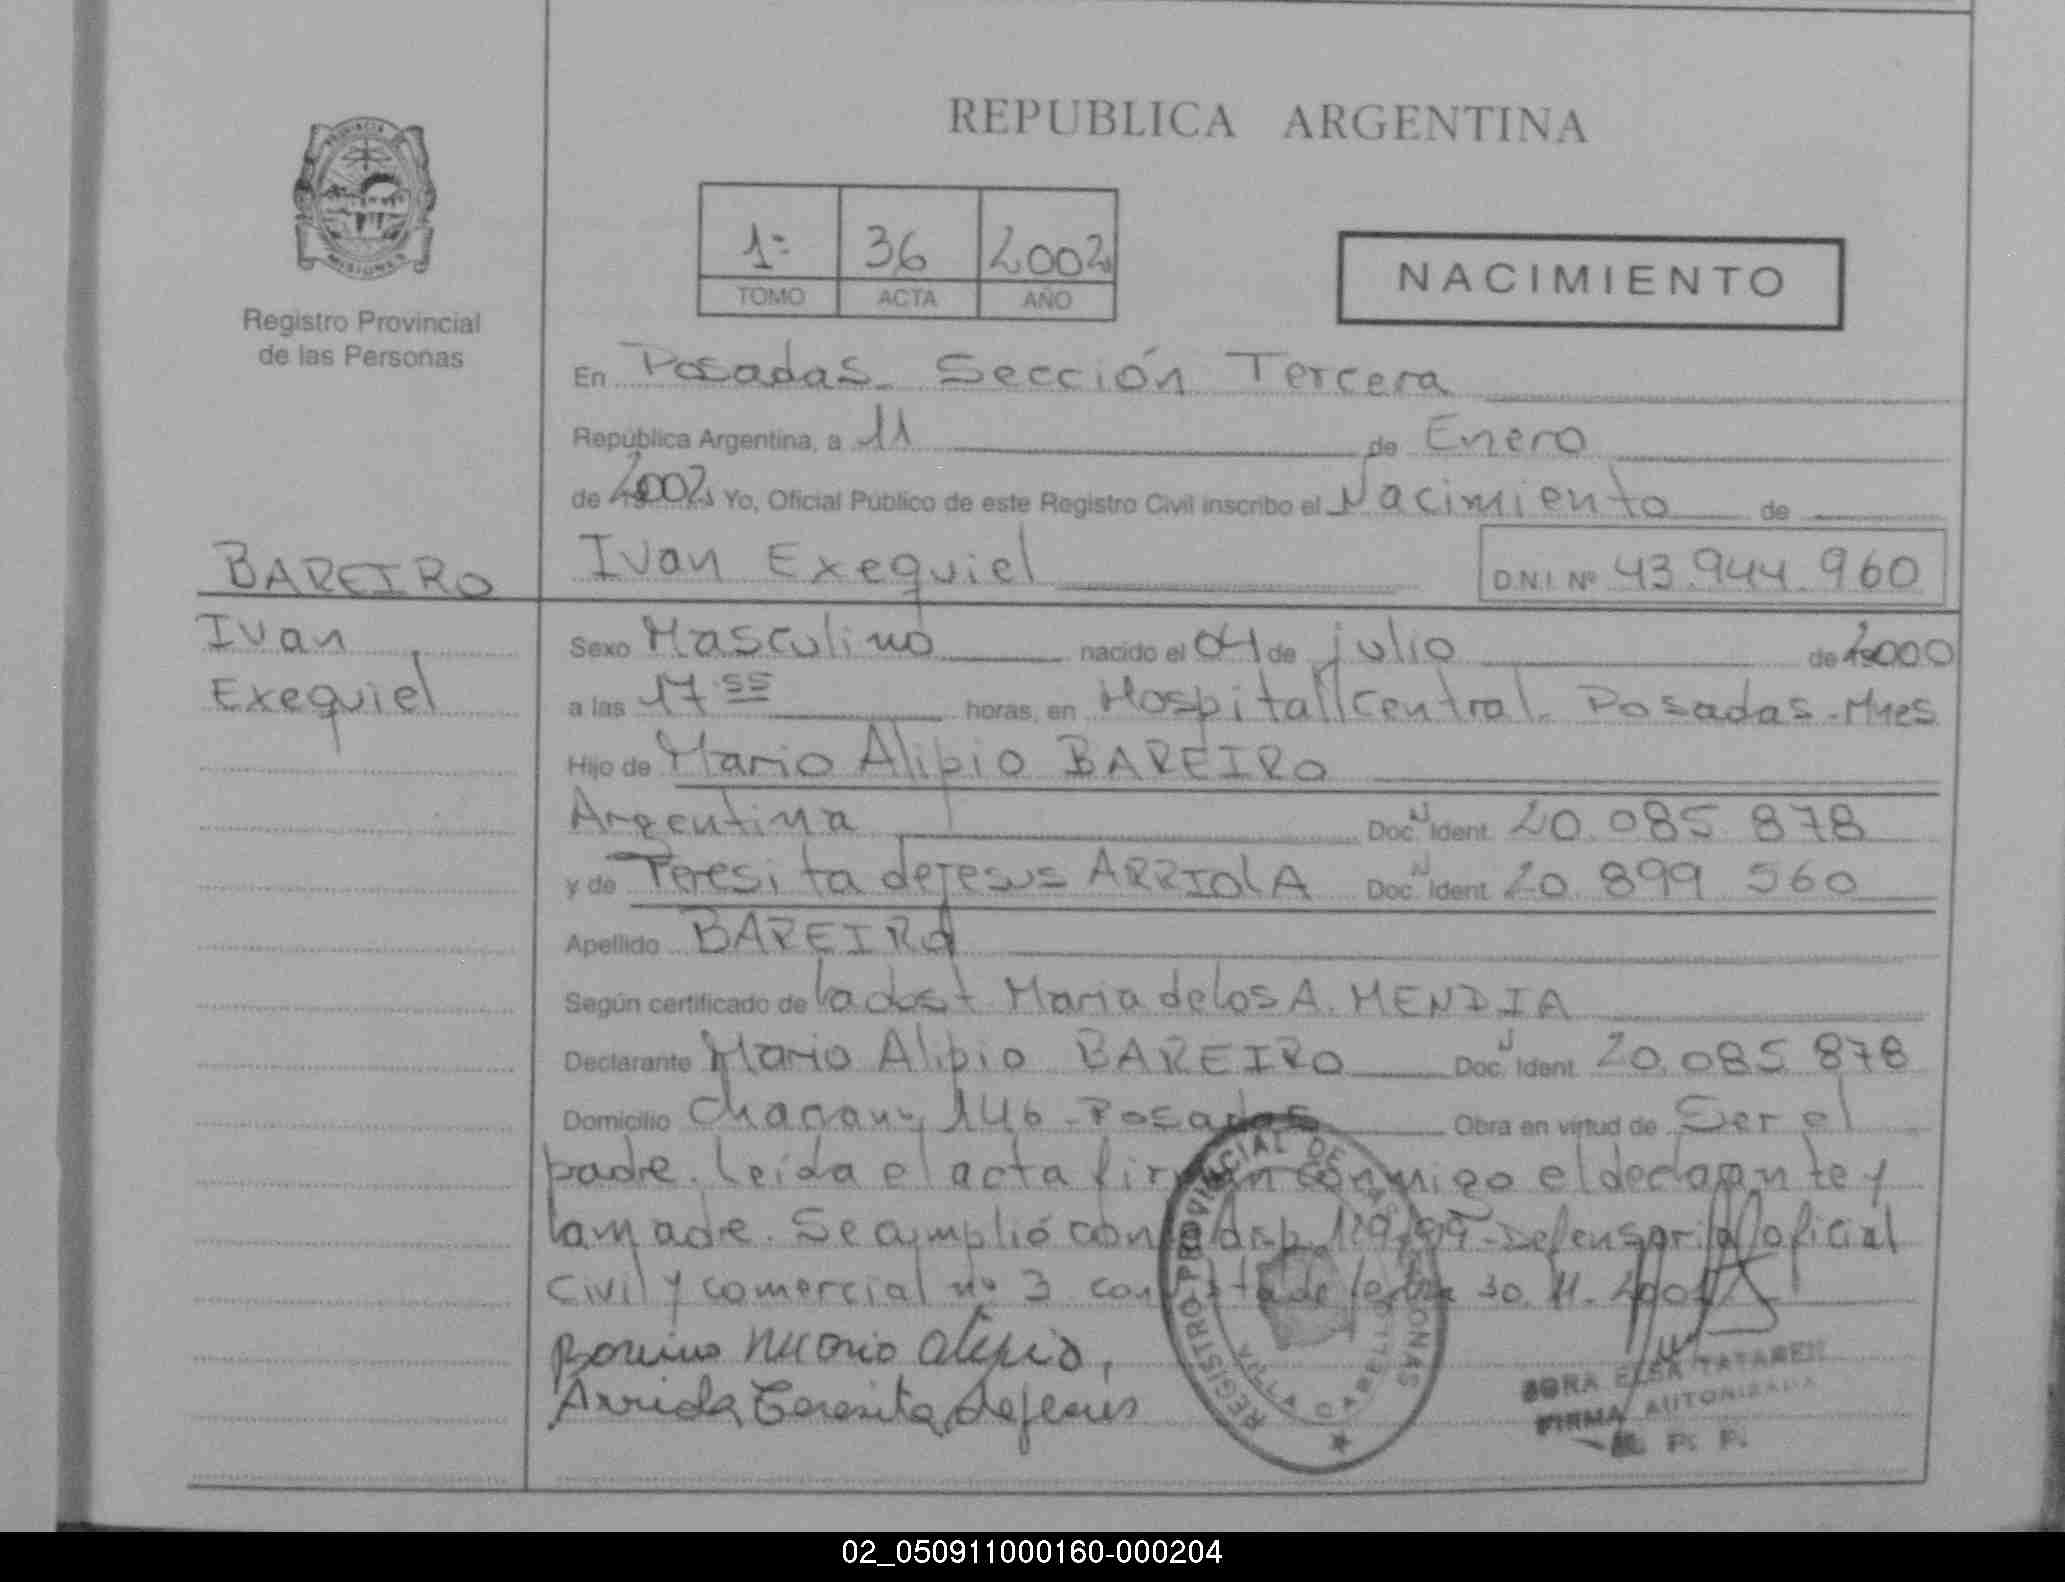 REPUBLICA ARGENTINA
PROVINCIA
MISIONES
Registro Provincial
de las Personas
1º 36 2002
TOMO ACTA AÑO
NACIMIENTO
En Posadas. Sección Tercera
República Argentina, a 11 de Enero
de 2002 Yo, Oficial Público de este Registro Civil inscribo el Nacimiento de
BAREIRO
Ivan Exequiel D.N.I. Nº 43.944.960
Ivan
Exequiel
Sexo Masculino nacido el 04 de julio de 2000
a las 17 55 horas, en Hospital Central. Posadas - Mnes
Hijo de Mario Alipio BAREIRO
Argentina Doc. Ident. 20.085.878
y de Teresita de Jesus ARRIOLA Doc. Ident. 20.899.560
Apellido BAREIRO
Según certificado de la obst. Maria de los A. MENDIA
Declarante Mario Alipio BAREIRO Doc. Ident. 20.085.878
Domicilio 146 - Posadas Obra en virtud de Ser el
padre. Leida el acta firman conmigo el declarante y
la madre. Se amplió con disp. Defensoria oficial
Civil y comercial nº 3 de fecha 30.11.
Mario Alipio
Arriola Teresita de Jesus
REGISTRO PROVINCIAL DE LAS PERSONAS
FIRMA AUTORIZADA
R. P. P.
02_050911000160-000204